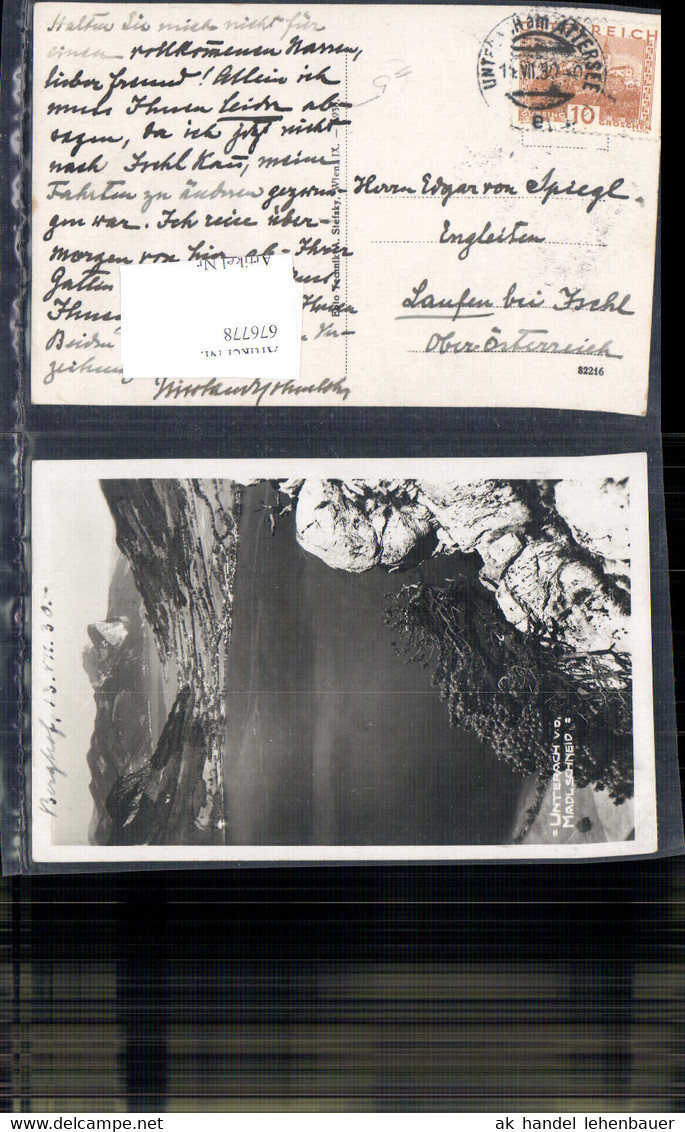 Halten Sie mich nicht für
einen vollkommenen Narren,
lieber Freund! Allein ich
muss Ihnen leider ab-
sagen, da ich jetzt nicht
nach Ischl kam, meine
Fahrten zu ändern gezwun-
gen war. Ich reise über-
morgen von hier ab - Ihrer
Gattin
Ihnen Ihnen
Beiden Ver-
zeihung
UNTERACH am ATTERSEE
ÖSTERREICH
10
GROSCHEN
Herrn Edgar von Spiegl
Engleiten
Laufen bei Ischl
Ober-Österreich
82216
Artikel Nr.
676778
Artikel Nr.
Berghof, 13. VII. 30.-
= UNTERACH V. D.
MADLSCHNEID =
ak handel lehenbauer